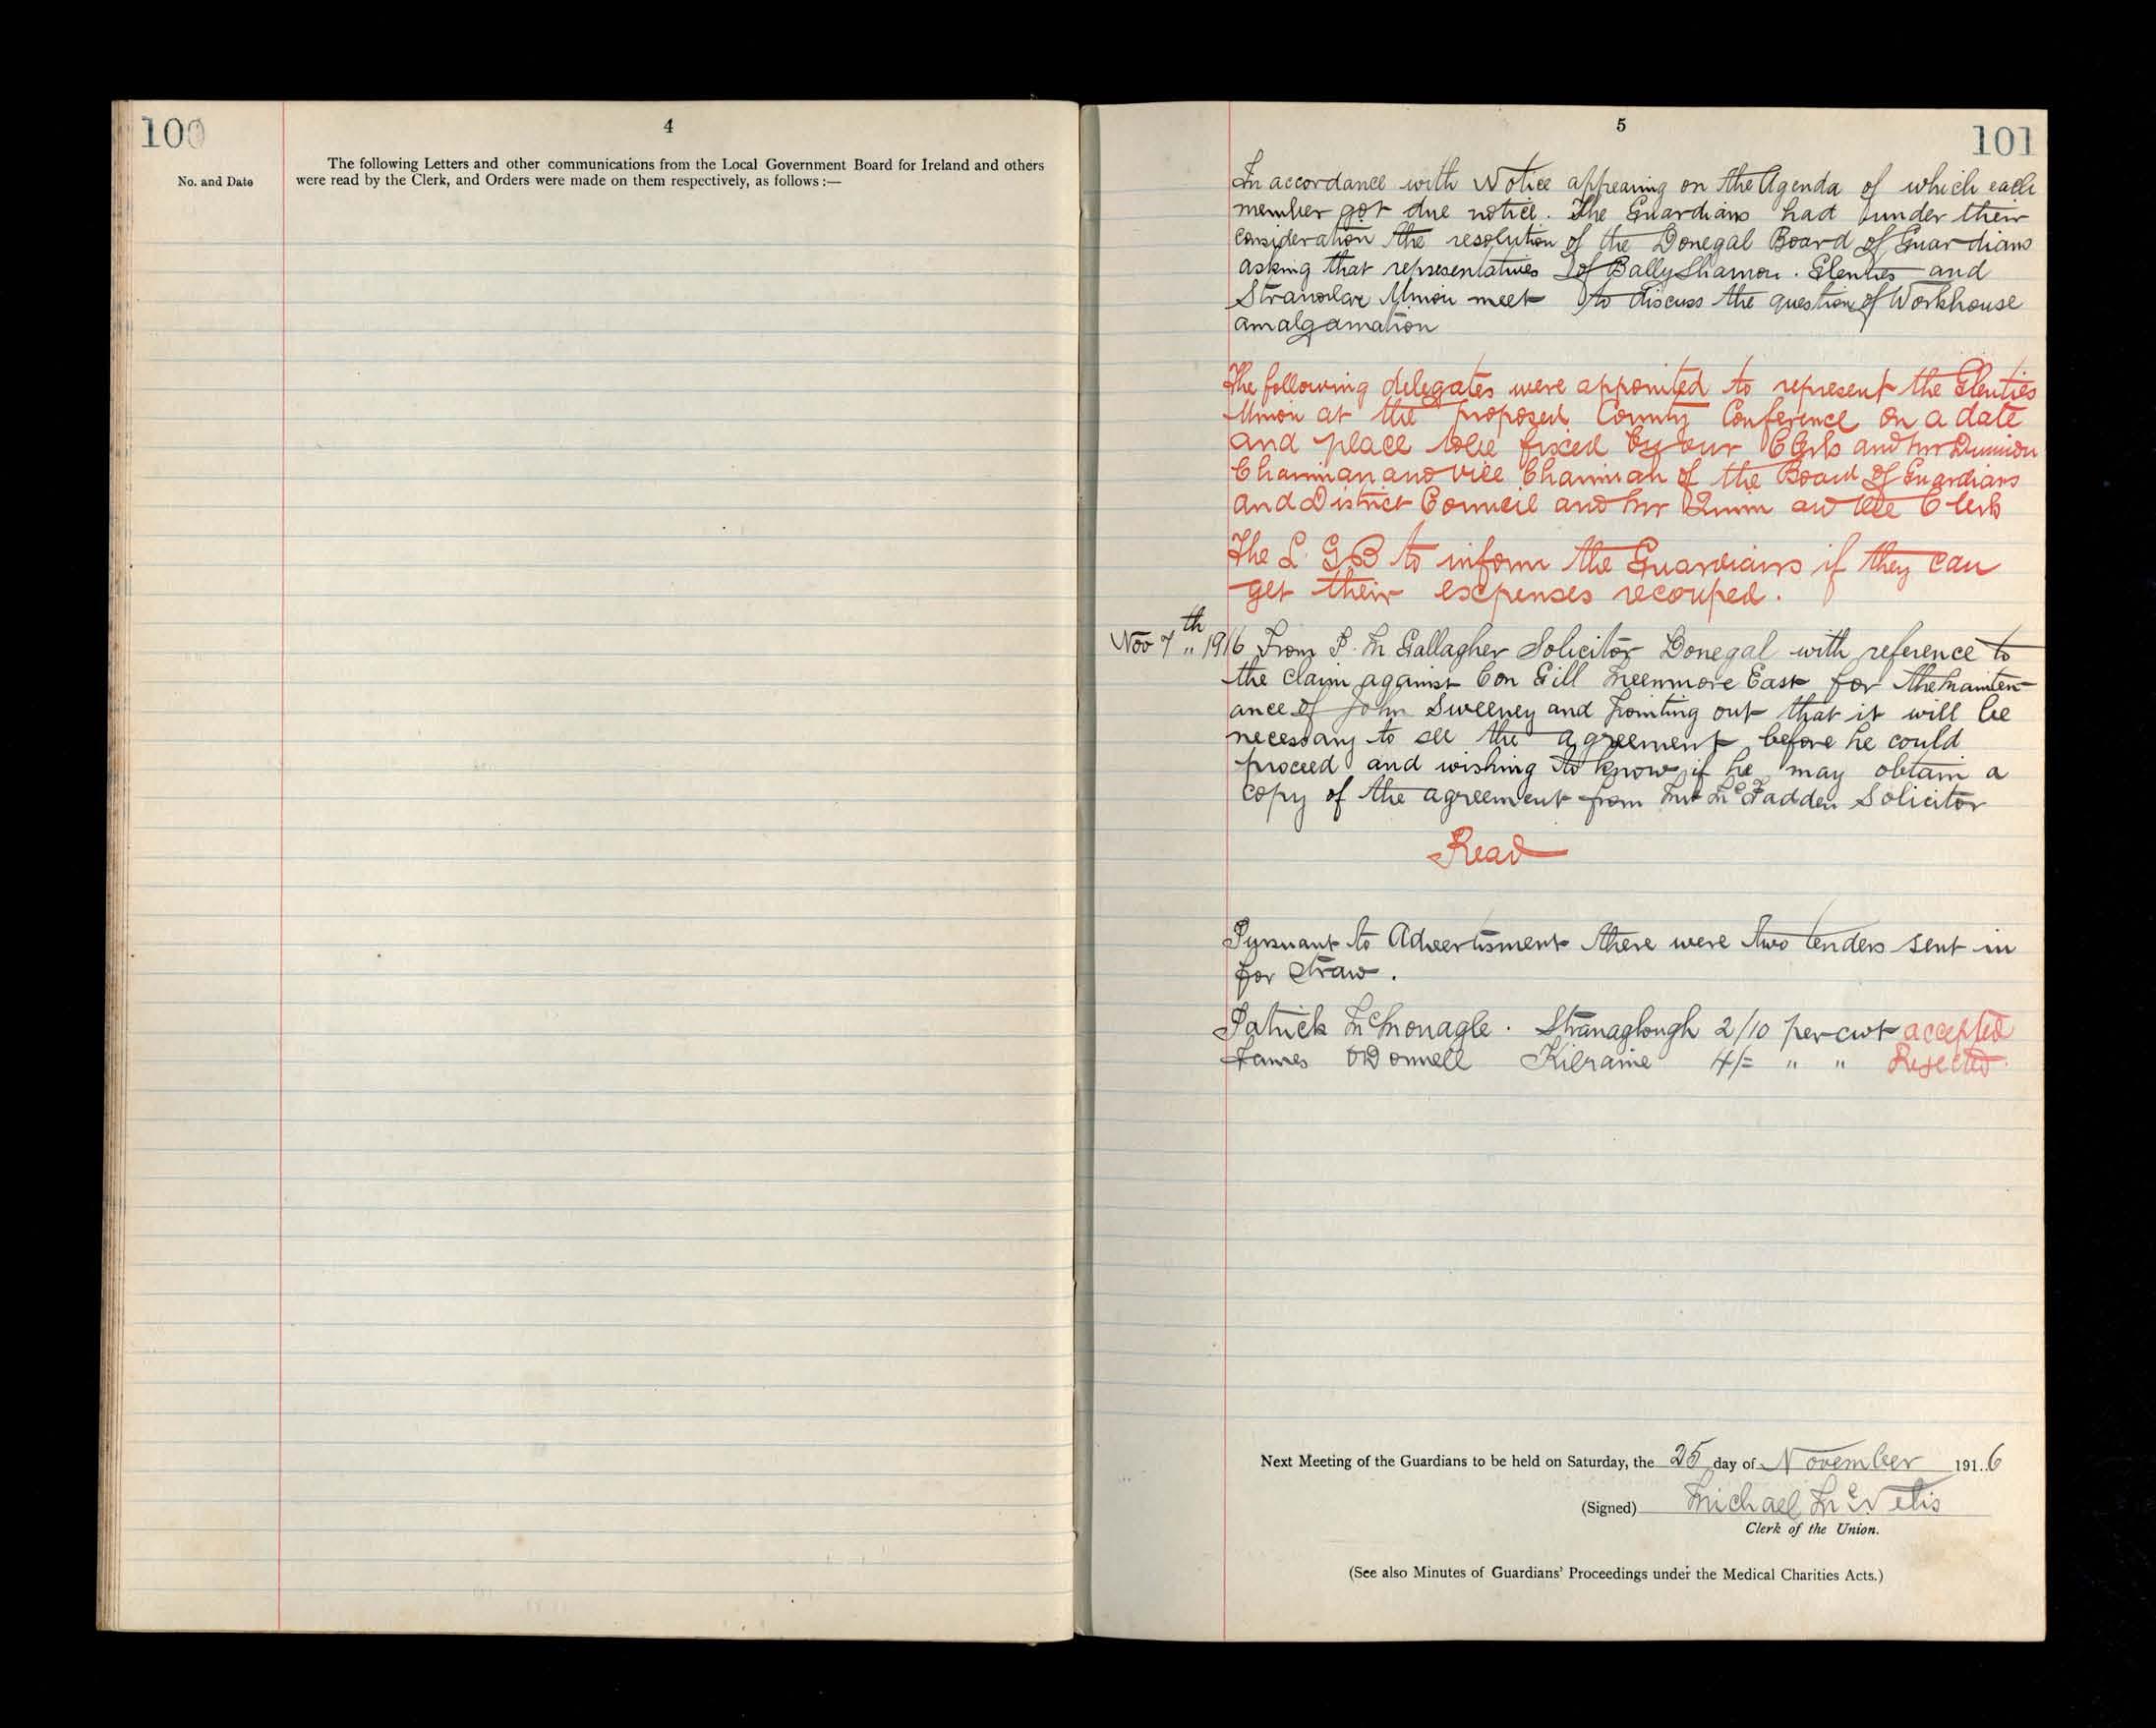 100
4
No. and Date
The following Letters and other communications from the Local Government Board for Ireland and others
were read by the Clerk, and Orders were made on them respectively, as follows :—
5
101
In accordance with Notice appearing on the Agenda of which each
member got due notice. The Guardians had under their
consideration the resolution of the Donegal Board of Guardians
asking that representatives of BallyShannon. Glenties and
Stranorlar Union meet to discuss the question of Workhouse
amalgamation
The following delegates were appointed to represent the Glenties
Union at the proposed County Conference on a date
and place to be fixed by our Clerk and Mr
Chairman and Vice Chairman of the Board of Guardians
and District Council and Mr Quinn and the Clerk
The L. G B to inform the Guardians if they can
get their expenses recouped.
Nov 7th 1916 From P. M Gallagher Solicitor Donegal with reference to
the claim against Con Gill Meenmore East for the mainten-
ance of John Sweeney and pointing out that it will be
necessary to see the agreement before he could
proceed and wishing to know if he may obtain a
copy of the agreement from Mr McFadden Solicitor
Read
Pursuant to Advertisment there were two tenders sent in
for straw.
Patrick McMonagle. Stranaglough 2/10 per cwt accepted
James O'Donnell Kilraine 4/= " " Rejected.
Next Meeting of the Guardians to be held on Saturday, the 25 day of November 1916
(Signed) Michael McNelis
Clerk of the Union.
(See also Minutes of Guardians' Proceedings under the Medical Charities Acts.)